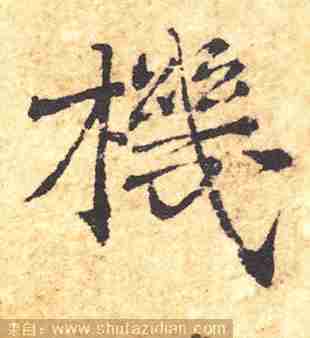 機
来自：www.shufazidian.com